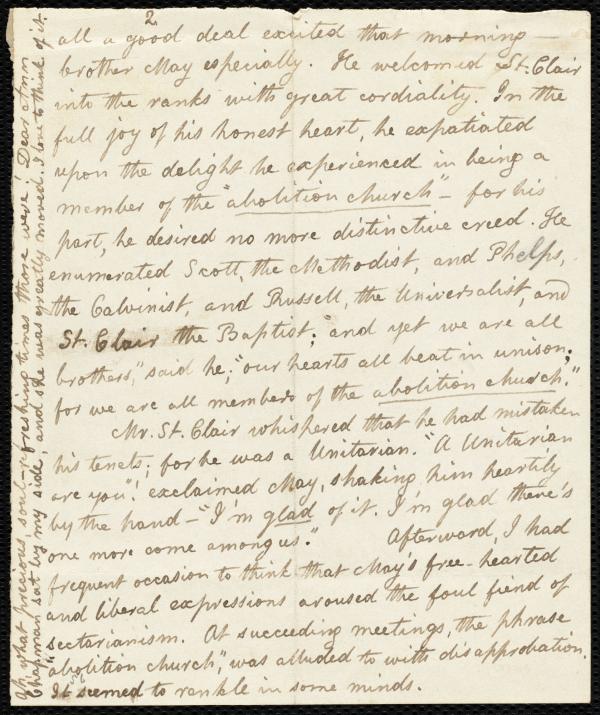 2
all a good deal excited that morning —
brother May especially. He welcomed St. Clair
into the ranks with great cordiality. In the
full joy of his honest heart, he expatiated
upon the delight he experienced in being a
member of the "abolition church" — for his
part, he desired no more distinctive creed. He
enumerated Scott, the Methodist, and Phelps,
the Calvinist, and Russell, the Universalist, and
St. Clair the Baptist; "and yet we are all
brothers," said he; "our hearts all beat in unison;
for we are all members of the abolition church."
Mr. St. Clair whispered that he had mistaken
his tenets; for he was a Unitarian. "A Unitarian
are you"! exclaimed May, shaking him heartily
by the hand — "I'm glad of it. I'm glad there's
one more come among us." Afterward, I had
frequent occasion to think that May's free-hearted
and liberal expressions aroused the foul fiend of
sectarianism. At succeeding meetings, the phrase
"abolition church," was alluded to with disapprobation.
It seemed to rankle in some minds.
Oh, what precious, soul-refreshing times those were! Dear Ann
Chapman sat by my side, and she was greatly moved. I love to think of it.